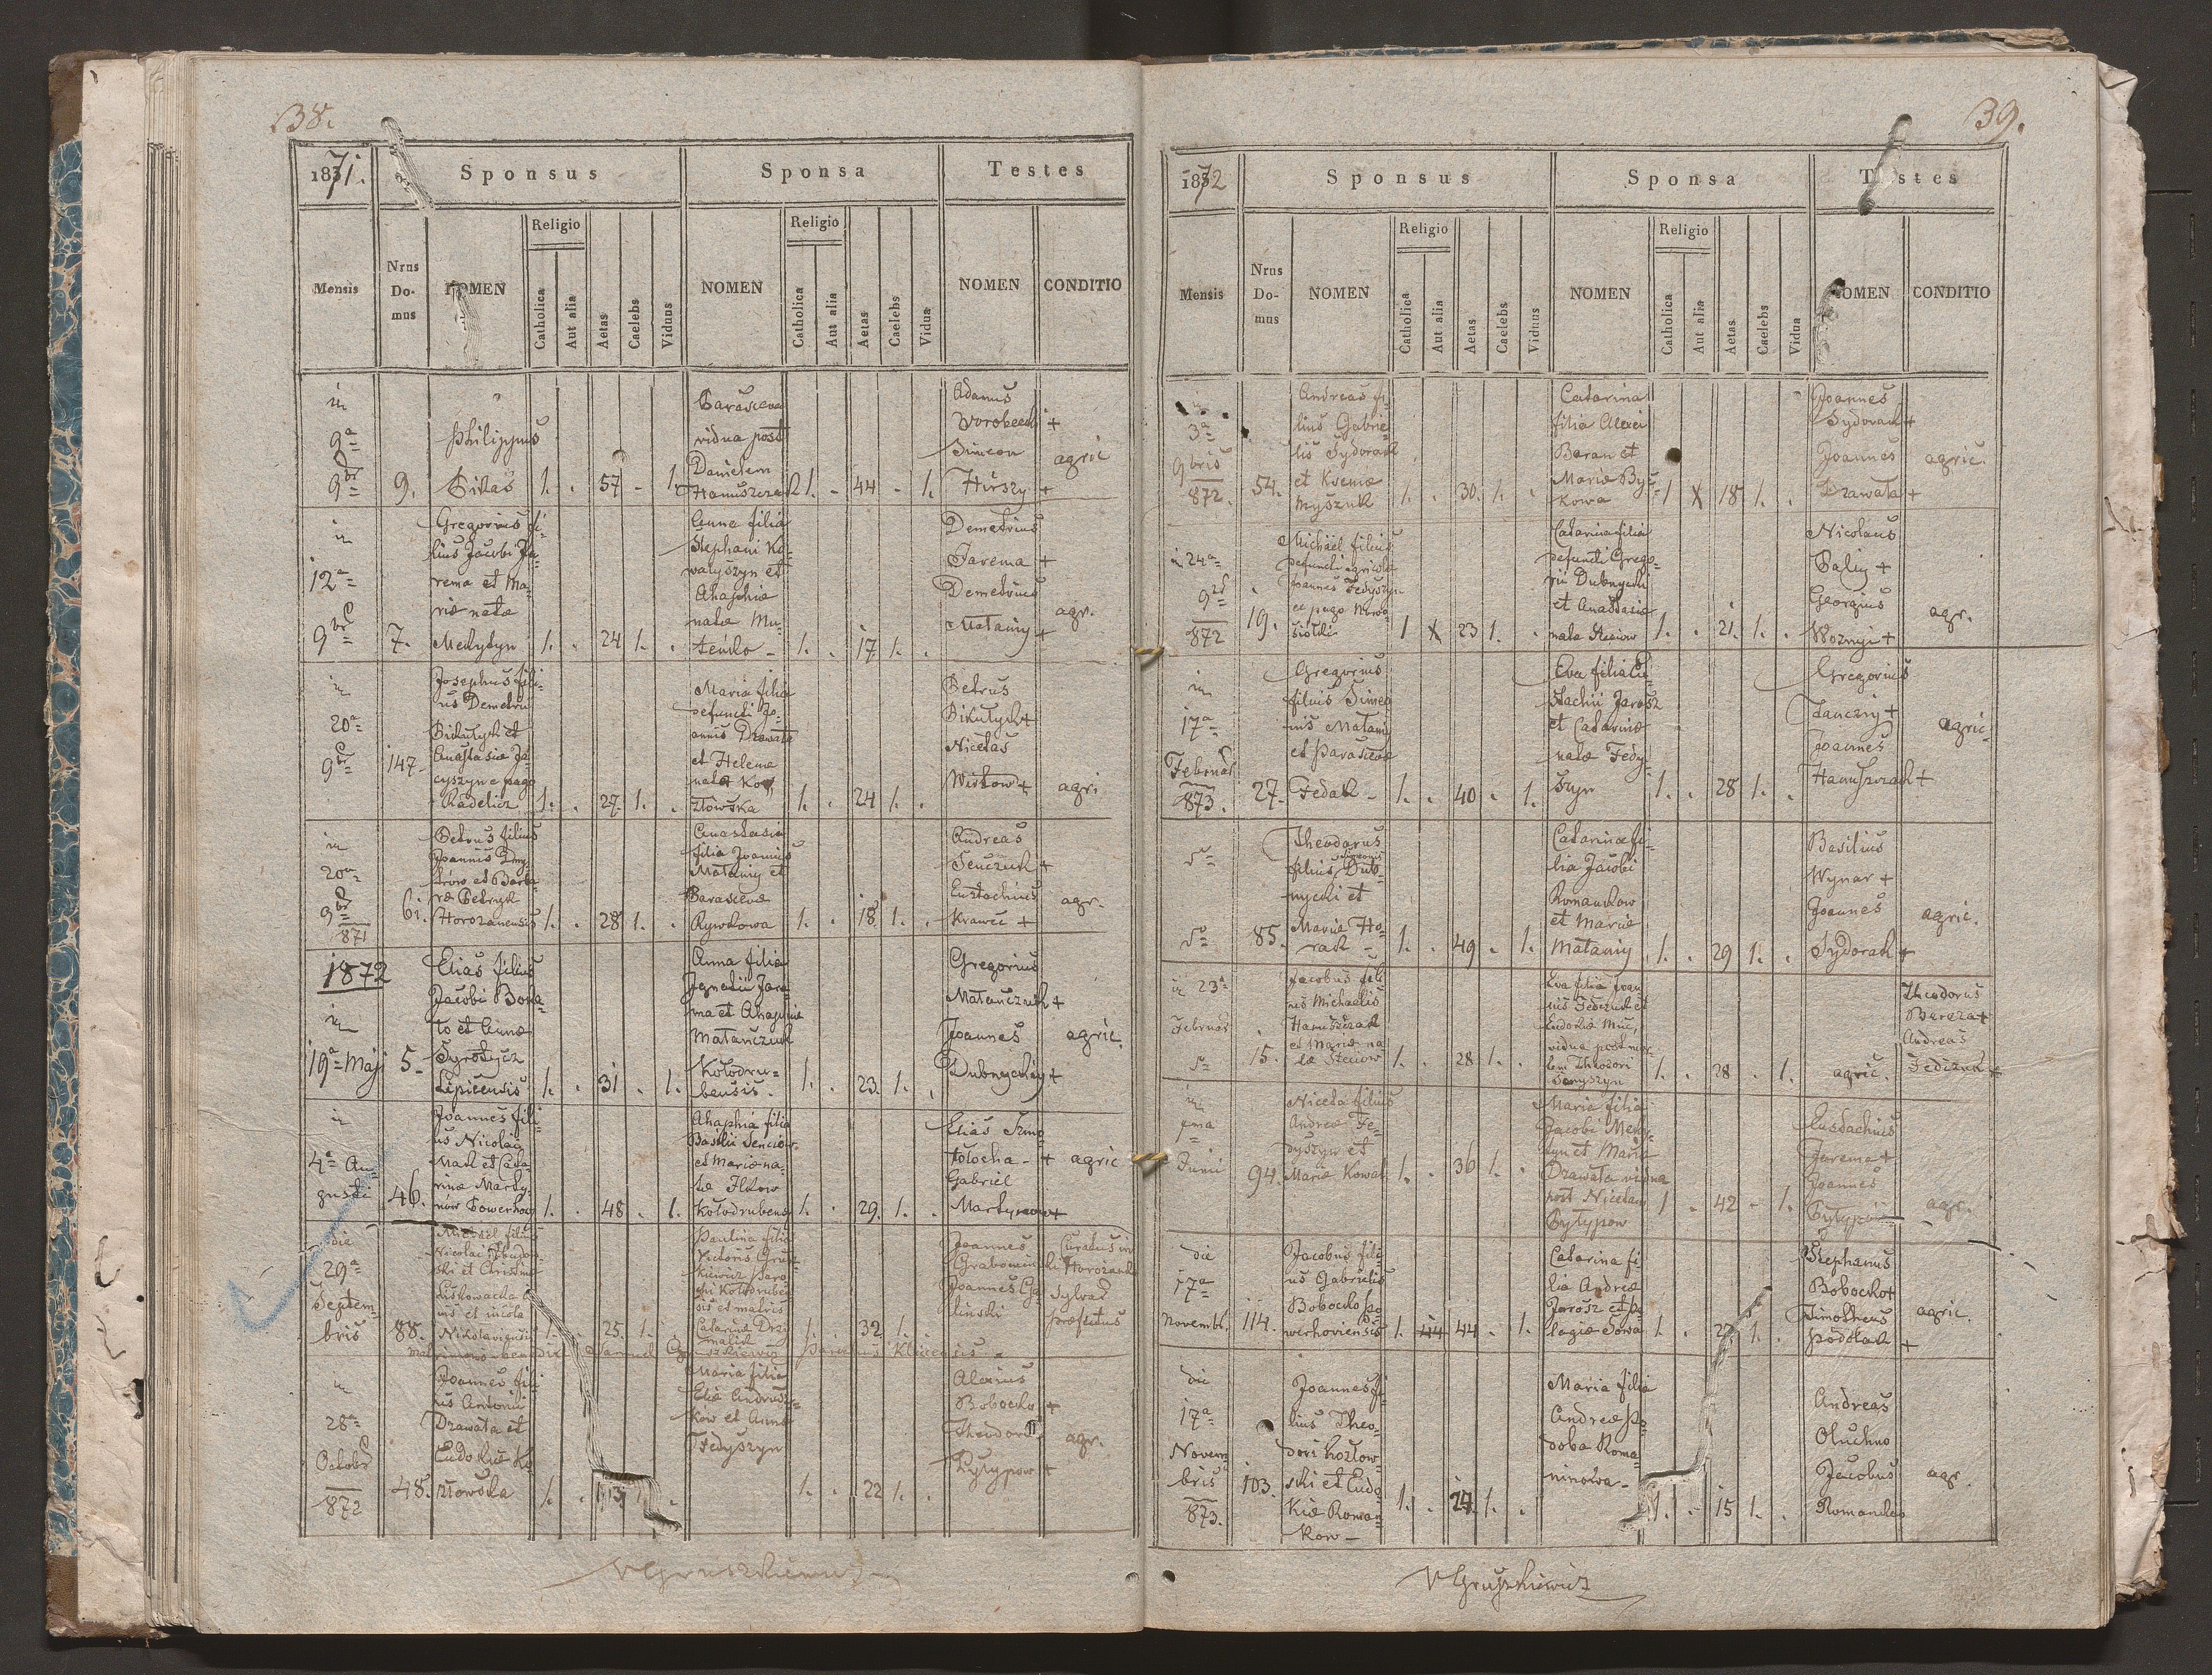 38.
1871.
Sponsus
Sponsa
Testes
Mensis
Nrus Domus
NOMEN
Religio
Catholica
Aut alia
Aetas
Caelebs
Viduus
NOMEN
Religio
Catholica
Aut alia
Aetas
Caelebs
Vidua
NOMEN
CONDITIO
in
9ª
9br
9.
Philippus
1. . 57 - 1.
Parasceva
vidua post
Danielem
Hanuszczak
1. - 44 - 1.
Adamus
Simeon
Hirszy +
agric
in
12ª
9br
7.
Gregorius fi-
lius Jacobi Ja-
rema et Ma-
riæ natæ
Medytyn
1. . 24 1. .
Anna filia
Stephani Ko-
walyszyn et
Ahaphiæ
natæ Mu-
1. . 17 1. .
Demetrius
Jarema +
Demetrius
Matainy +
agr.
in
20ª
9br
147.
Josephus fili-
us Demetrii
Pikulych et
Anastasiæ Ja-
cyszyn e pago
Radelicz
1. . 27. 1. .
Maria filia
defuncti Jo-
annis Drawata
et Helenæ
natæ Koz
łowska
1. . 24 1. .
Petrus
Pikulych +
Nicetas
Witkow +
agri
in
20ª
9br
871
61.
Petrus filius
Joannis Dmy-
trów et Barba
ræ Petryk
Horozanensis
1. . 28 1. .
Anastasia
filia Joannis
Matainy et
Parascevæ
Rywkowa
1. . 18 1. .
Andreas
Senczuk +
Eustachius
Krawec +
agr.
1872
in
19ª Maji
5.
Elias filius
Jacobi
to et Annæ
Lipicensis
1. . 31 . 1.
Anna filia
Ignatii Jare
ma et Ahaphiæ
Matanczuk
Kołodru-
bensis.
1. . 23. 1. .
Gregorius
Matanczuk +
Joannes
Dubnyckyj +
agric.
in
4ª Au-
gusti
46.
Joannes fili-
us Nicolai
Mach et Catha-
rinæ Marty-
nów Powerhow
1. . 48 . 1.
Ahaphia filia
Basilii Senciów
et Mariæ na-
tæ Ilkow
Kołodrubens
1. . 29. 1. .
Elias Szmo-
tołocha - +
Gabriel
Martynow +
agric
die
29ª
Septem-
bris
88.
Michael filius
Nicolai
ski et Christinæ
nis et incola
Nikolaiensis
1. . 25. 1.
Paulina filia
Victoris Grusz-
kiewicz paro-
chi Kołodruben
sis et matris
Catarinæ
1. . 32 1. .
Joannes
Grabowiński
Joannes Ga-
linski
Curatus in
Horozanka
Sylvae
præfectus
Matrimonio benedixit Samuel Gruszkiewicz Parochus Klicensis.
in
28ª
Octobr
872
48.
Joannes fili
us Antonii
Drawata et
Eudokiæ Ko
złowska
1. .
Maria filia
Eliæ Andrus-
ków et Annæ
Fedyszyn
1. . 22 1. .
Alexius
Bobocho +
Theodorus
Pytypow +
agr.
VGruszkiewicz
39.
1872
Sponsus
Sponsa
Testes
Mensis
Nrus Domus
NOMEN
Religio
Catholica
Aut alia
Aetas
Caelebs
Viduus
NOMEN
Religio
Catholica
Aut alia
Aetas
Caelebs
Vidua
NOMEN
CONDITIO
3ª
9bris
872.
54.
Andreas fi-
lius Gabrie-
lis Sydorak
et Xeniæ
Myszuk
1. . 30. 1. .
Catarina
filia Alexii
Baran et
Mariæ By-
kowa
1 X 18 1. .
Joannes
Sydorak +
Joannes
Drawata +
agric.
in 24ª
9br
872
19.
Michael filius
defuncti agricolæ
Joannes Fedyszyn
ex pago Nowo-
siołki
1 X 23 1. .
Catarina filia
defuncti Grego-
rii Dubnycki
et Anastasiæ
natæ Steciow
1. . 21. 1. .
Nicolaus
Paliy +
Georgius
Woznyi +
agr.
in
17ª
Februar
873.
27.
Gregorius
filius Simeo
nis Matain
et Parascevæ
Fedak -
1. . 40 . 1.
Eva filia Eu-
stachii Jarosz
et Catarinæ
natæ Fedy-
szyn
1. . 28 1. .
Gregorius
Joannes
Hanuszczak +
agric.
85.
Theodorus
filius Simeonis Dub-
nycki et
Mariæ Ho-
rak -
1. . 49 - 1.
Catarina fi-
lia Jacobi
Romankow
et Mariæ
Matainy
1. . 29 1. .
Basilius
Wynar +
Joannes
Sydorak +
agric.
in 23ª
Februar
15.
Jacobus fili
us Michaelis
Hanuszczak
et Mariæ na
tæ Steciow
1. . 28 1. .
Eva filia Joan
nis Fedczuk et
Eudokiæ Muc,
vidua post mor-
tem Theodori
Senyszyn
1. . 28 . 1.
agric.
Theodorus
Bereza +
Andreas
Fedczuk +
in
1ma
Junii
94.
Niceta filius
Andreæ Fe-
dyszyn et
Mariæ Kowal
1. . 36 1. .
Maria filia
Jacobi Medy-
tyn et Mariæ
Drawata vidua
post Nicetam
Pytypow
1 . 42 - 1.
Eustachius
Jarema +
Joannes
Pytypow
agr.
die
17ª
Novemb.
114.
Jacobus fili-
us Gabrielis
Bobocho po
werhoviensis
1. 44 44 . 1.
Catarina fi-
lia Andreæ
Jarosz et Pe
lagiæ Sowa
1. . 27 1. .
Stephanus
Bobocho +
Timotheus
Podolak +
agric.
die
17ª
Novem-
bris
873.
103.
Joannes fi-
lius Theo-
dori Kozłow-
ski et Eudo-
kiæ Roman-
kow -
1. . 24. 1. .
Maria filia
Andreæ Po
doba Roma-
ninowa -
1. . 15 1. .
Andreas
Oluchno
Jacobus
Romanków
agr.
VGruszkiewicz